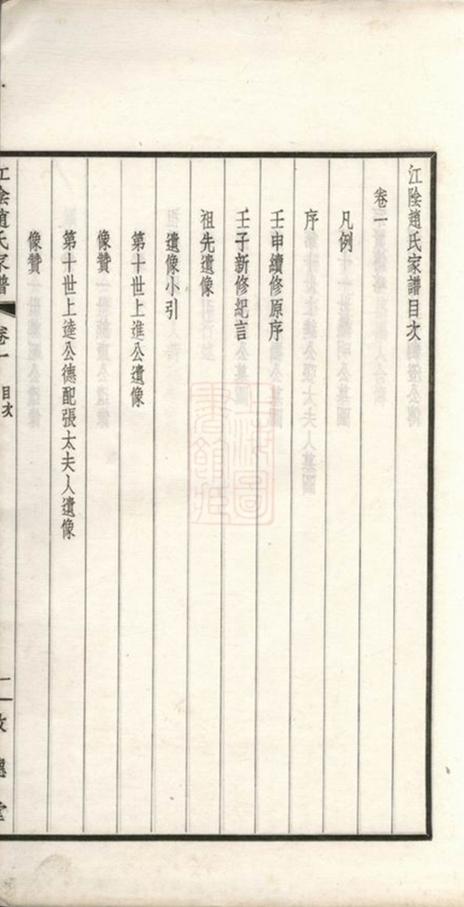 江陰趙氏家譜目次
卷一
凡例
序
壬申續修原序
壬子新修紀言
祖先遺像
遺像小引
第十世上進公遺像
像贊
第十世上逵公德配張太夫人遺像
像贊
江陰趙氏家譜
卷一
目次